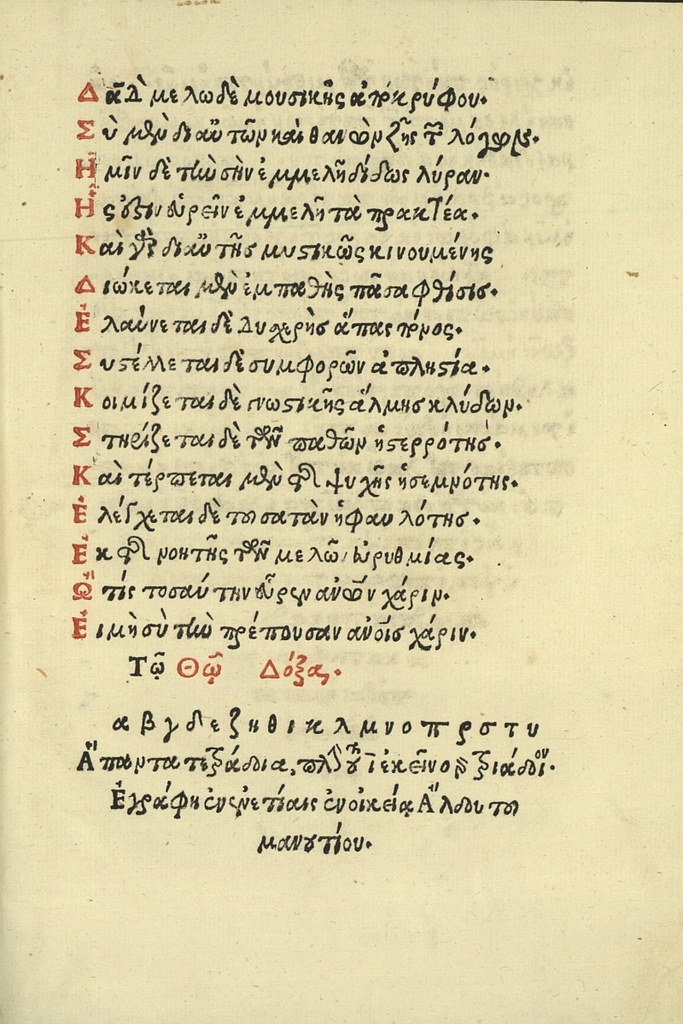 Δαδ̅ μελωδὲ μουσικῆς ἀποκρύφου·
Σὺ μὲν διαὐτῶν καὶ θανὼν ζῆς τῶν λόγων·
Ἡμῖν δὲ τὴν σὴν ἐμμελῆ δίδως λύραν·
Ἧς ἔστιν εὑρεῖν ἐμμελῆ τὰ πρακτέα·
Καὶ γὰρ διαὐτῆς μυστικῶς κινουμένης
Διώκεται μὲν ἐμπαθὴς πᾶσα φθίσις·
Ἐλαύνεται δὲ δυχερὴς ἅπας πόνος·
Συστέλλεται δὲ συμφορῶν ἀπληστία·
Κοιμίζεται δὲ γνωστικῆς ἅλμης κλύδων·
Στηρίζεται δὲ τῶν παθῶν ἡ στερρότης·
Καὶ τέρπεται μὲν τῆς ψυχῆς ἡ σεμνότης·
Ἐλέγχεται δὲ τοῦ σατὰν ἡ φαυλότης·
Ἐκ τῆς νοητῆς τῶν μελῶν εὐρυθμίας·
Ὦ τίς τοσαύτην εὗρεν ἀνῶν χάριν·
Εἰ μὴ σὺ τὴν πρέπουσαν ἀνοις χάριν·
Τῷ Θῶ Δόξα·
α β γ δ ε ζ η θ ι κ λ μ ν ο π ρ σ τ υ
Ἅπαντα τετράδια, πλὴν τοῦ υ ἐκεῖνο γὰρ τριάδιον·
Ἐγράφη ἐν ἐνετίαις ἐν οἰκείᾳ Ἄλδου τοῦ
μανουτίου·